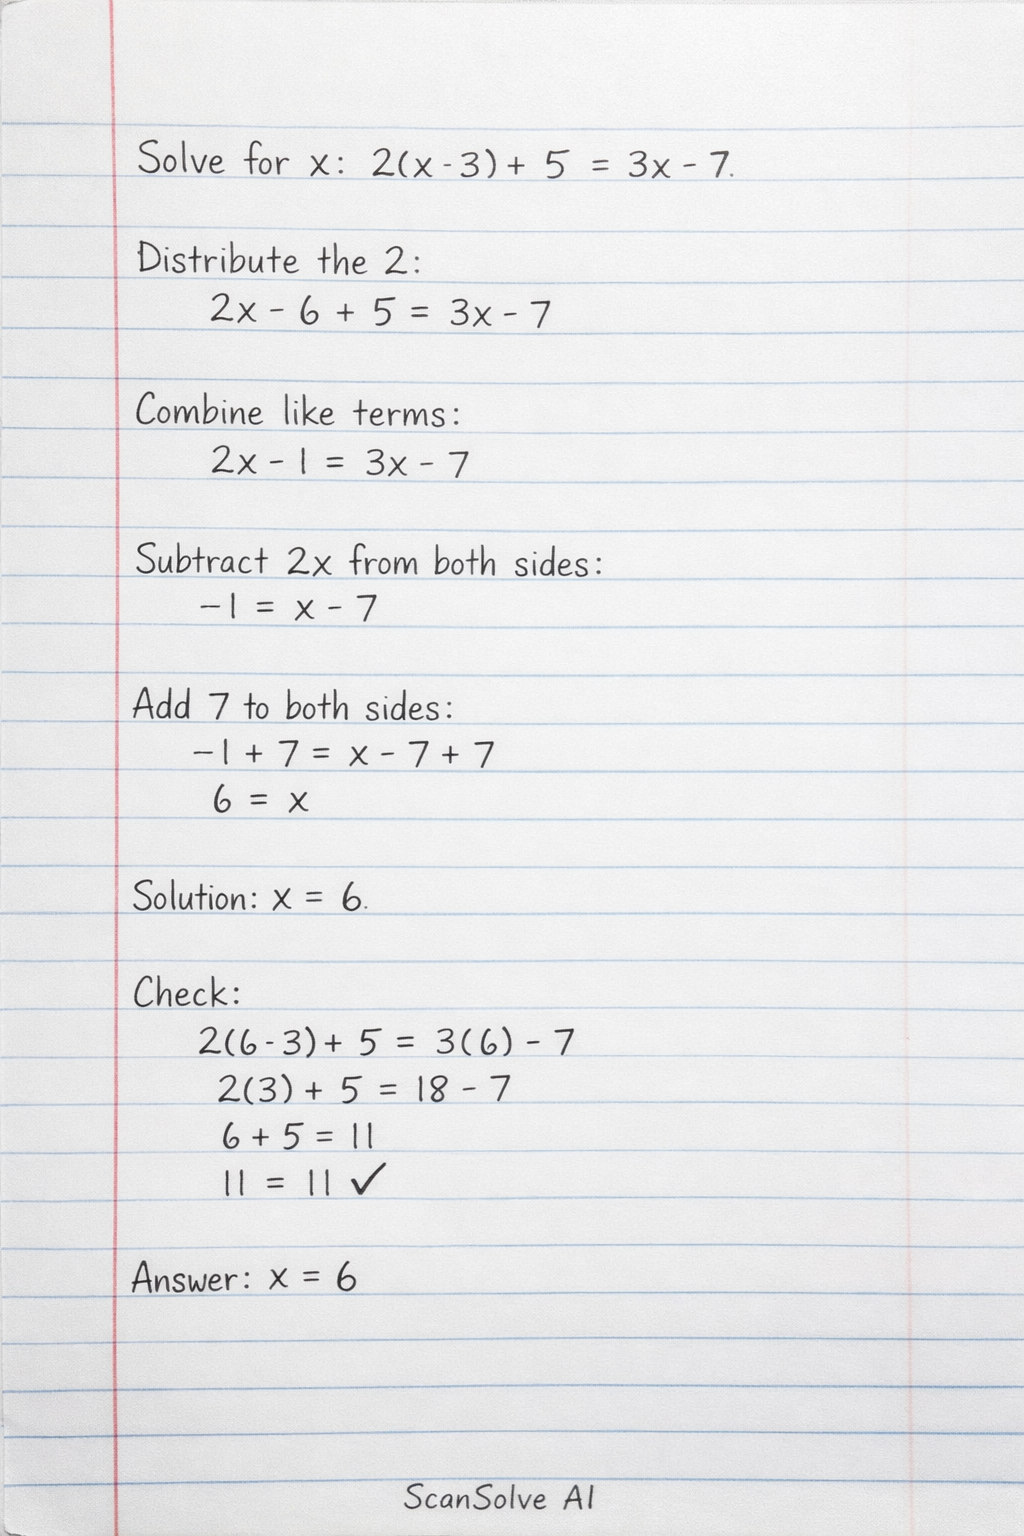 Solve for x: 2(x - 3) + 5 = 3x - 7.
Distribute the 2:
2x - 6 + 5 = 3x - 7
Combine like terms:
2x - 1 = 3x - 7
Subtract 2x from both sides:
-1 = x - 7
Add 7 to both sides:
-1 + 7 = x - 7 + 7
6 = x
Solution: x = 6.
Check:
2(6 - 3) + 5 = 3(6) - 7
2(3) + 5 = 18 - 7
6 + 5 = 11
11 = 11 ✓
Answer: x = 6
ScanSolve AI